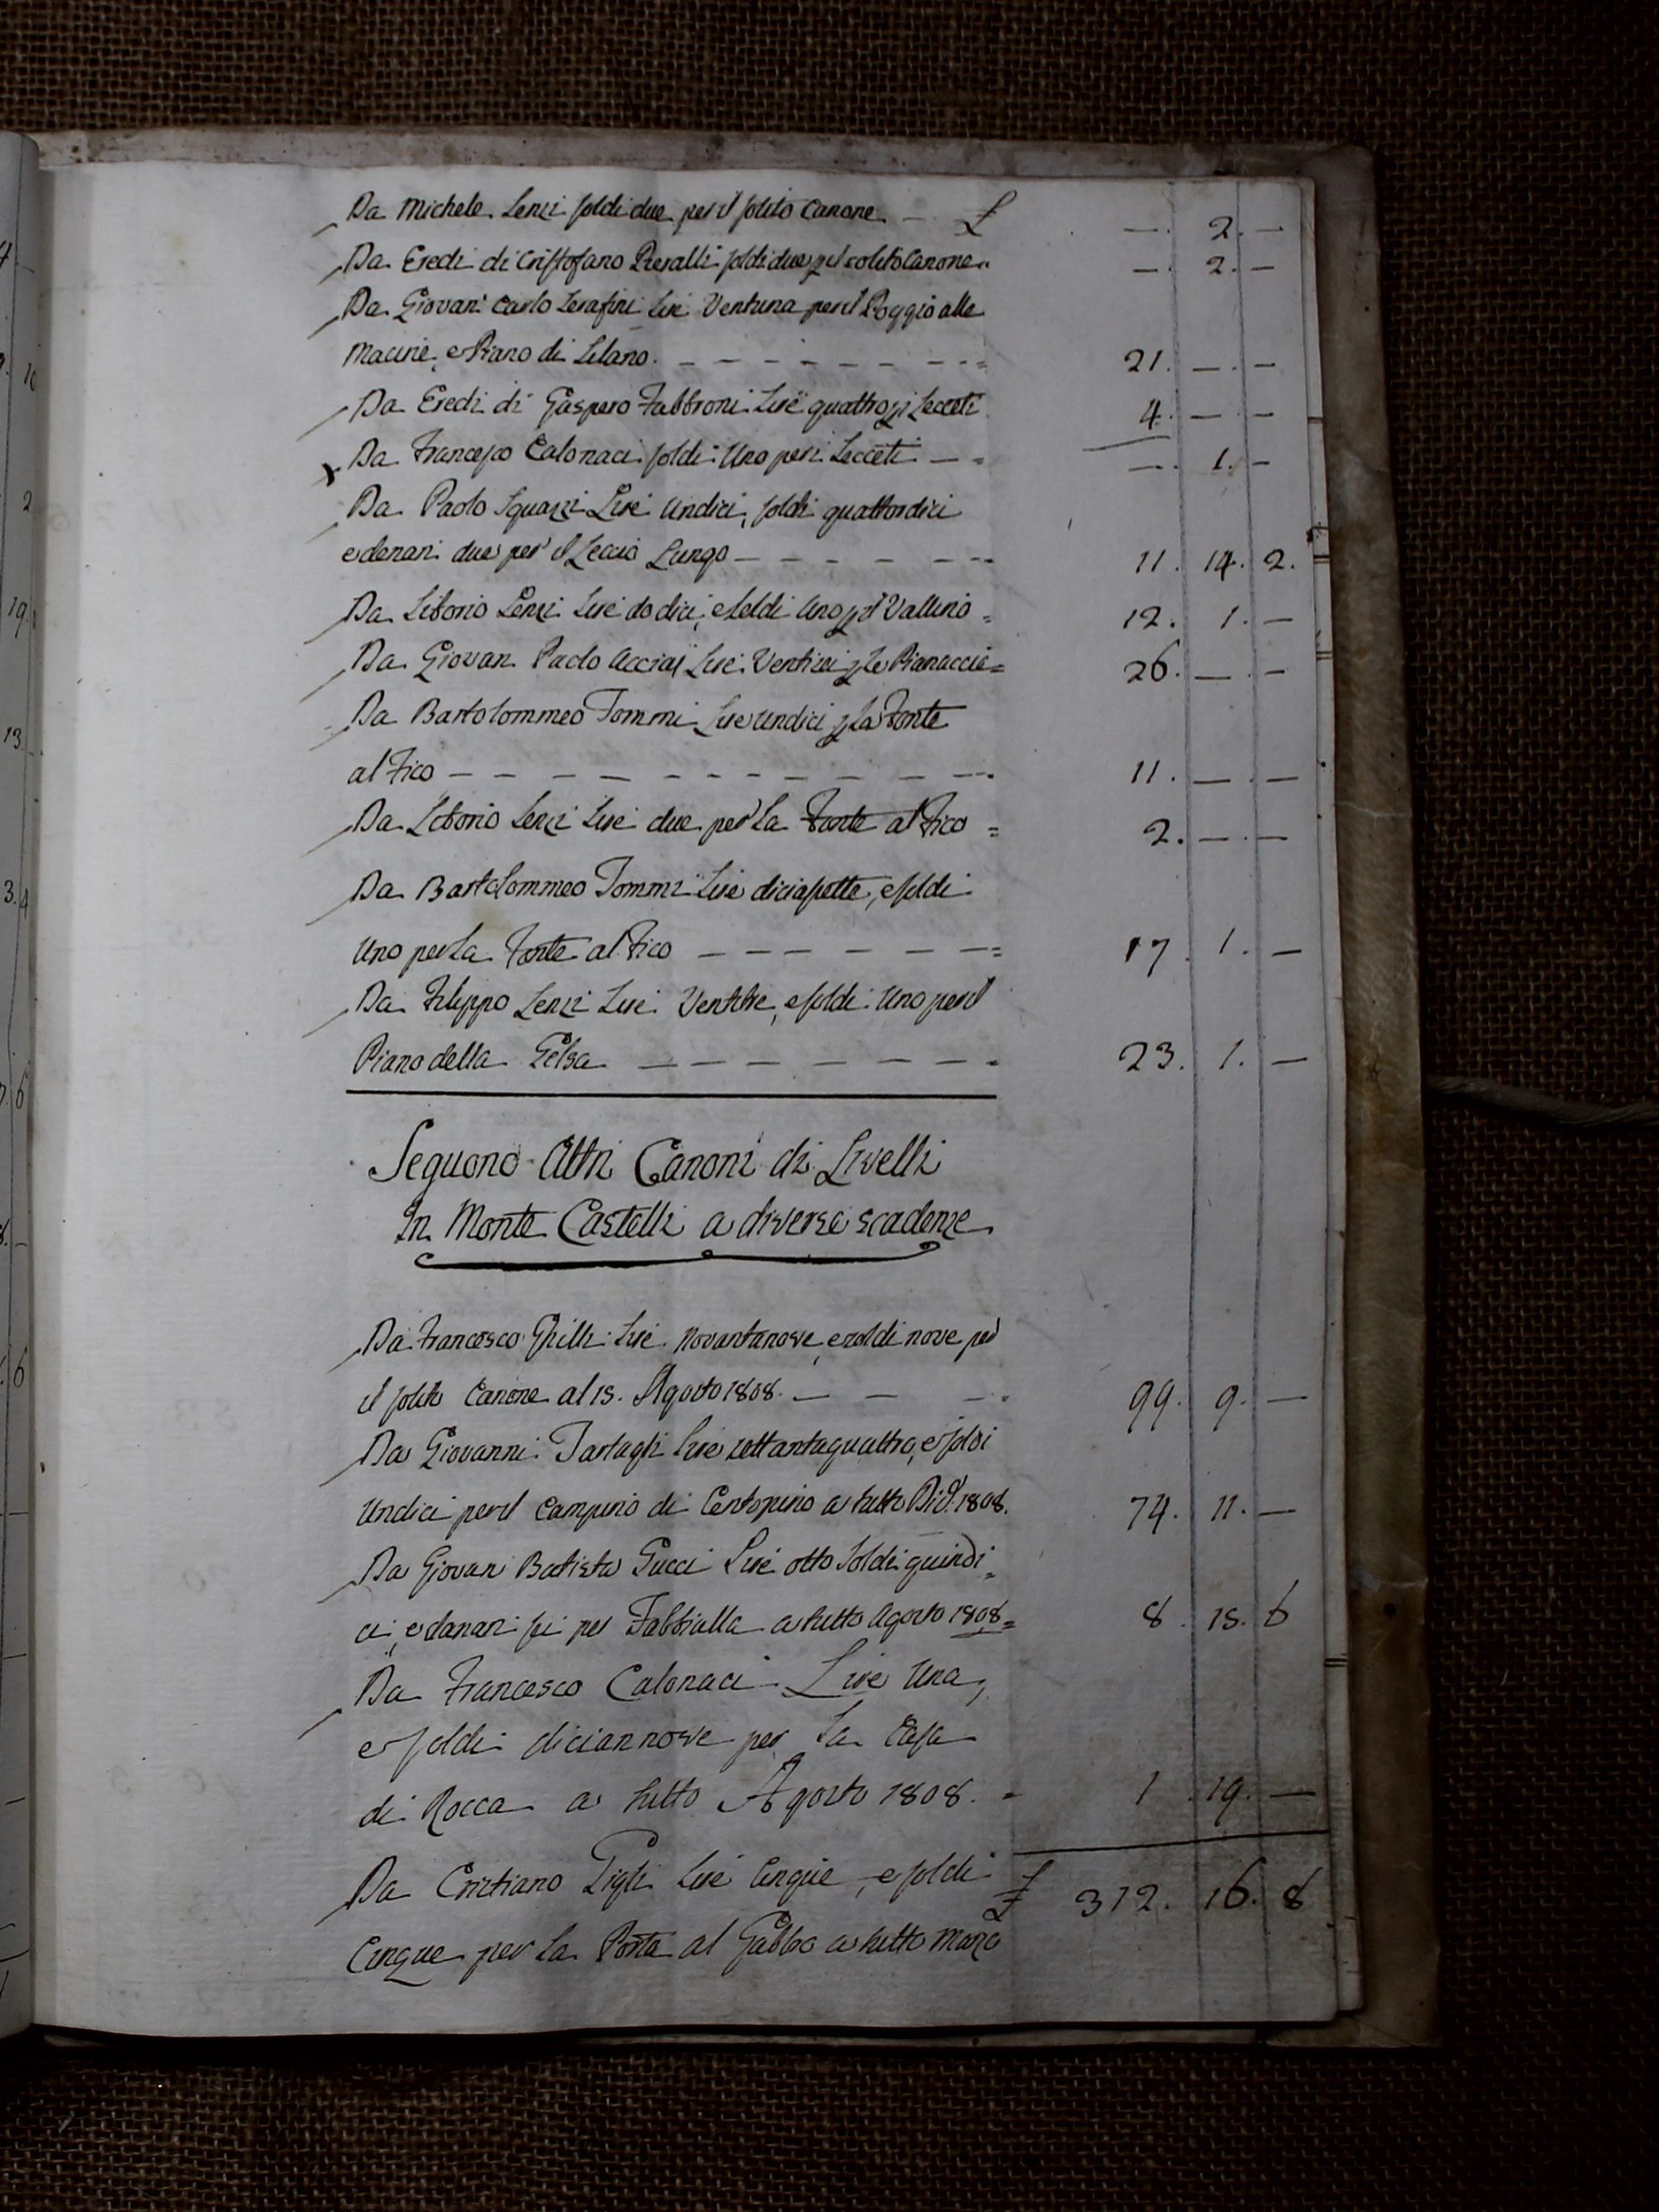 Da Michele Lenzi soldi due per il solito Canone — £ —. 2. —
Da Eredi di Cristofano soldi due pel solito Canone —. 2. —
Da Giovan Carlo Serafini Lire Ventuna per il Poggio alle
Macine, e Piano di 21. —. —
Da Eredi di Gaspero Fabbroni Lire quattro pi Lecceti 4. —. —
Da Francesco Calonaci soldi Uno per i Lecceti —. 1. —
Da Paolo Squarzi Lire Undici, soldi quattordici
e denari due per il Leccio Lungo 11. 14. 2.
Da Liborio Lenzi Lire dodici, e soldi Uno pil Vallino 12. 1. —
Da Giovan Paolo Acciai Lire Ventisei ple Pianaccie 26. —. —
Da Bartolommeo Tommi Lire Undici pla Fonte
al Fico 11. —. —
Da Liborio Lenzi Lire due per la Fonte al Fico 2. —. —
Da Bartolommeo Tommi Lire diciasette, e soldi
Uno per la Fonte al Fico 17. 1. —
Da Filippo Lenzi Lire Ventitre, e soldi Uno per il
Piano della Gelsa 23. 1. —
Seguono Altri Canoni di Livelli
In Monte Castelli a diverse scadenze
Da Francesco Ghilli Lire Novantanove, e soldi nove per
il solito Canone al 15. Agosto 1808. 99. 9. —
Da Giovanni Tartagli Lire settantaquattro, e soldi
Undici per il Campino di Centopino a tutto 1808. 74. 11. —
Da Giovan Batista Gucci Lire otto Soldi quindi=
ci, e danari sei per Fabbialla a tutto Agosto 1808= 8. 15. 6
Da Francesco Calonaci Lire Una,
e soldi diciannove per la Casa
di Rocca a tutto Agosto 1808. 1. 19. —
Da Cristiano Ligli Lire Cinque, e soldi £ 312. 16. 8
Cinque per la Porta al Gabbo a tutto Marzo